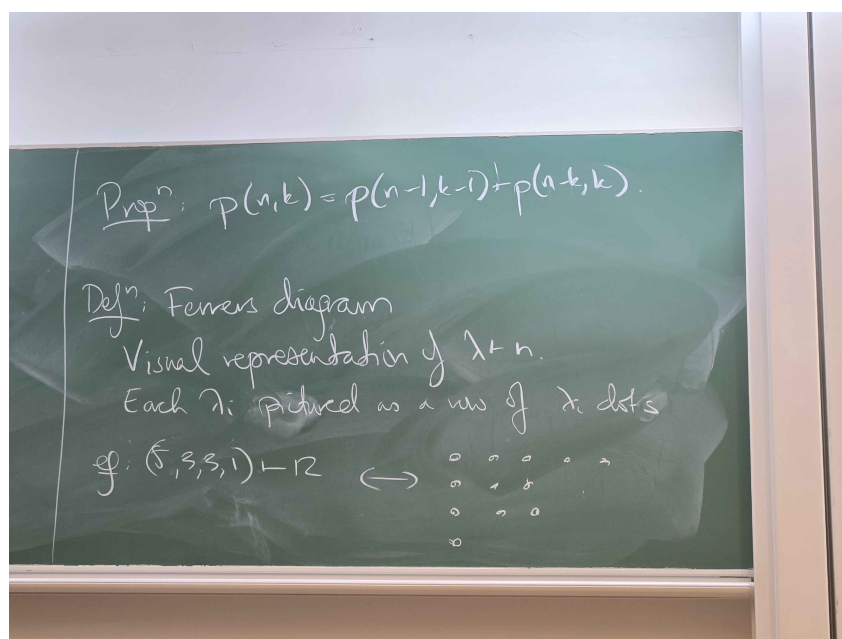 Propⁿ: p(n,k) = p(n-1,k-1) + p(n-k,k).
Defⁿ: Ferrers diagram
Visual representation of λ ⊢ n.
Each λᵢ pictured as a row of λᵢ dots
eg: (5,3,3,1) ⊢ 12 ↔